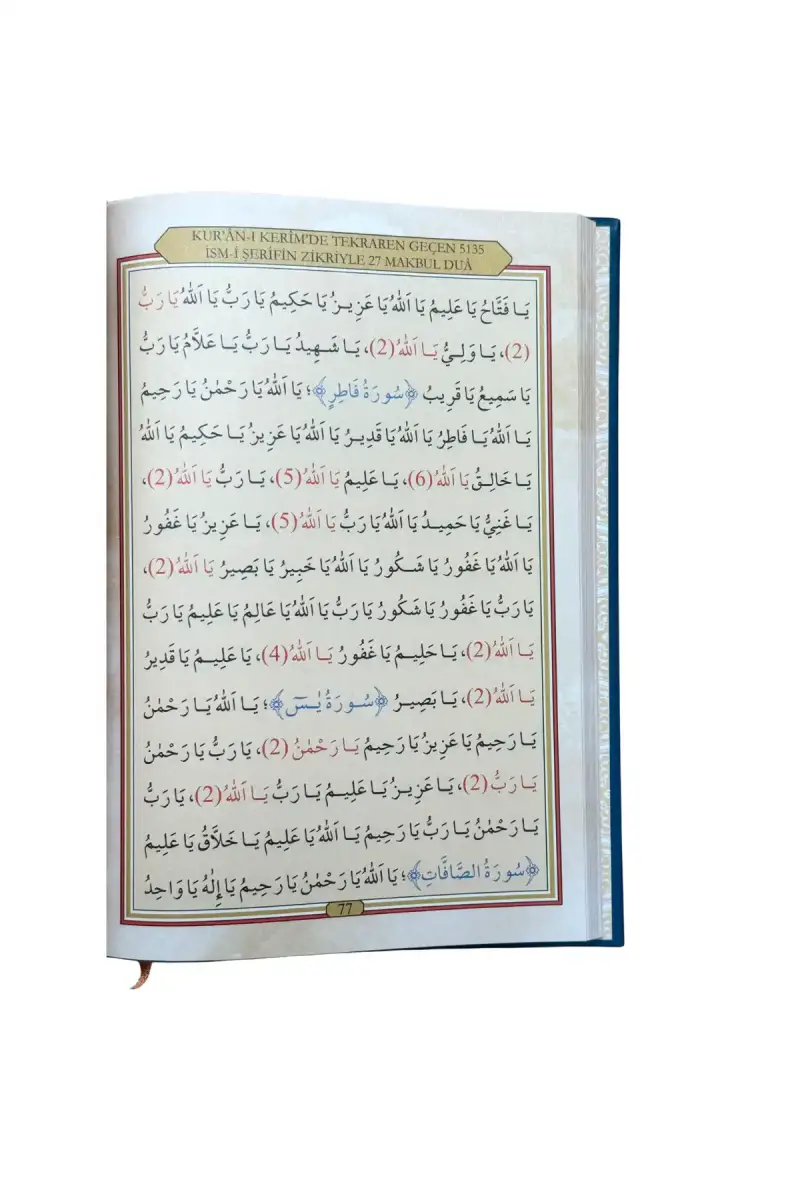 KUR'ÂN-I KERİM'DE TEKRAREN GEÇEN 5135
İSM-İ ŞERİFİN ZİKRİYLE 27 MAKBUL DUÂ
يَا فَتَّاحُ يَا عَلِيمُ يَا اَللّٰهُ يَا عَزِيزُ يَا حَكِيمُ يَا رَبُّ يَا اَللّٰهُ يَا رَبُّ
(2)، يَا وَلِيُّ يَا اَللّٰهُ (2)، يَا شَهِيدُ يَا رَبُّ يَا عَلَّامُ يَا رَبُّ
يَا سَمِيعُ يَا قَرِيبُ ﴿سُورَةُ فَاطِرٍ﴾؛ يَا اَللّٰهُ يَا رَحْمٰنُ يَا رَحِيمُ
يَا اَللّٰهُ يَا فَاطِرُ يَا اَللّٰهُ يَا قَدِيرُ يَا اَللّٰهُ يَا عَزِيزُ يَا حَكِيمُ يَا اَللّٰهُ
يَا خَالِقُ يَا اَللّٰهُ (6)، يَا عَلِيمُ يَا اَللّٰهُ (5)، يَا رَبُّ يَا اَللّٰهُ (2)،
يَا غَنِيُّ يَا حَمِيدُ يَا اَللّٰهُ يَا رَبُّ يَا اَللّٰهُ (5)، يَا عَزِيزُ يَا غَفُورُ
يَا اَللّٰهُ يَا غَفُورُ يَا شَكُورُ يَا اَللّٰهُ يَا خَبِيرُ يَا بَصِيرُ يَا اَللّٰهُ (2)،
يَا رَبُّ يَا غَفُورُ يَا شَكُورُ يَا رَبُّ يَا اَللّٰهُ يَا عَالِمُ يَا عَلِيمُ يَا رَبُّ
يَا اَللّٰهُ (2)، يَا حَلِيمُ يَا غَفُورُ يَا اَللّٰهُ (4)، يَا عَلِيمُ يَا قَدِيرُ
يَا اَللّٰهُ (2)، يَا بَصِيرُ ﴿سُورَةُ يٰسٓ﴾؛ يَا اَللّٰهُ يَا رَحْمٰنُ
يَا رَحِيمُ يَا عَزِيزُ يَا رَحِيمُ يَا رَحْمٰنُ (2)، يَا رَبُّ يَا رَحْمٰنُ
يَا رَبُّ (2)، يَا عَزِيزُ يَا عَلِيمُ يَا رَبُّ يَا اَللّٰهُ (2)، يَا رَبُّ
يَا رَحْمٰنُ يَا رَبُّ يَا رَحِيمُ يَا اَللّٰهُ يَا عَلِيمُ يَا خَلَّاقُ يَا عَلِيمُ
﴿سُورَةُ الصَّافَّاتِ﴾؛ يَا اَللّٰهُ يَا رَحْمٰنُ يَا رَحِيمُ يَا إِلٰهُ يَا وَاحِدُ
77